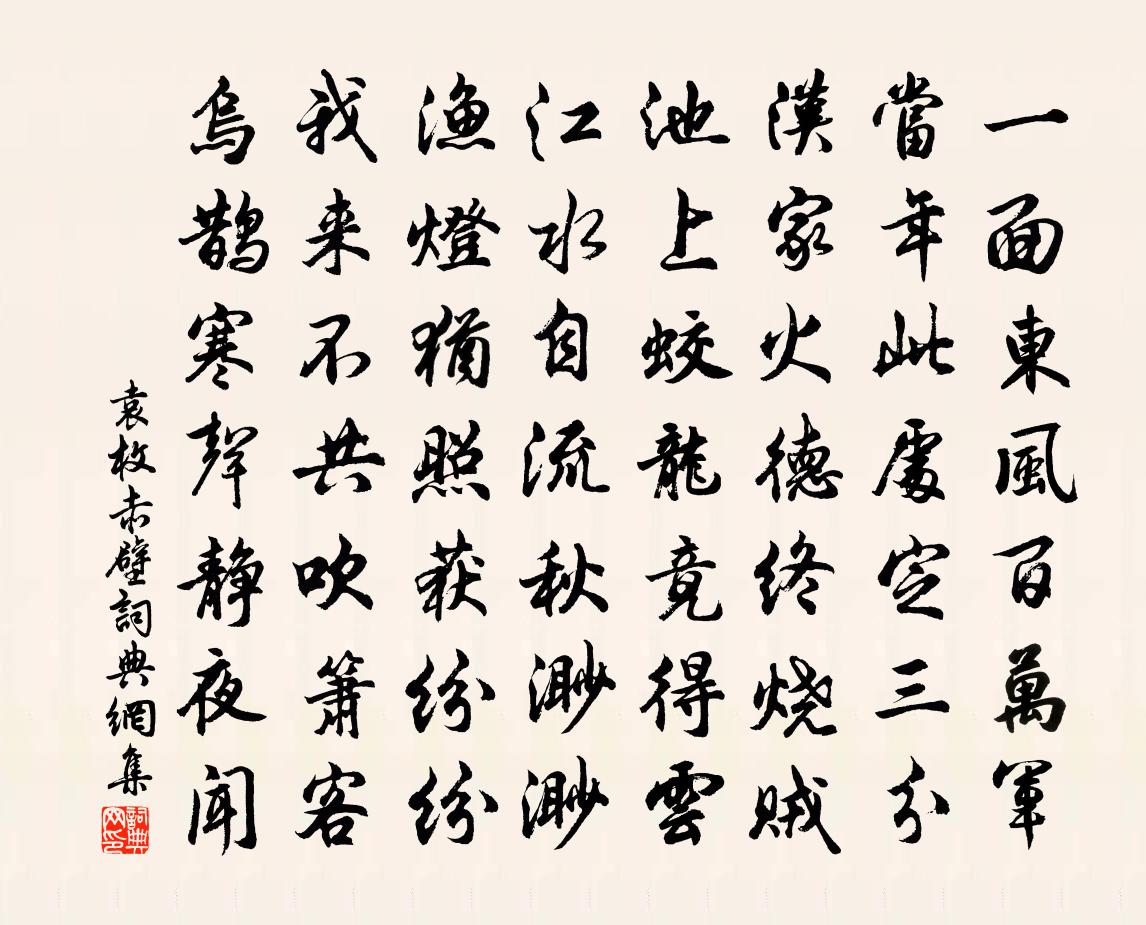 一面東風百萬軍
當年此處定三分
漢家火德終燒賊
池上蛟龍竟得雲
江水自流秋渺渺
漁燈猶照荻紛紛
我来不共吹簫客
烏鵲寒聲静夜聞
袁枚赤壁詞典網集
詞典網印